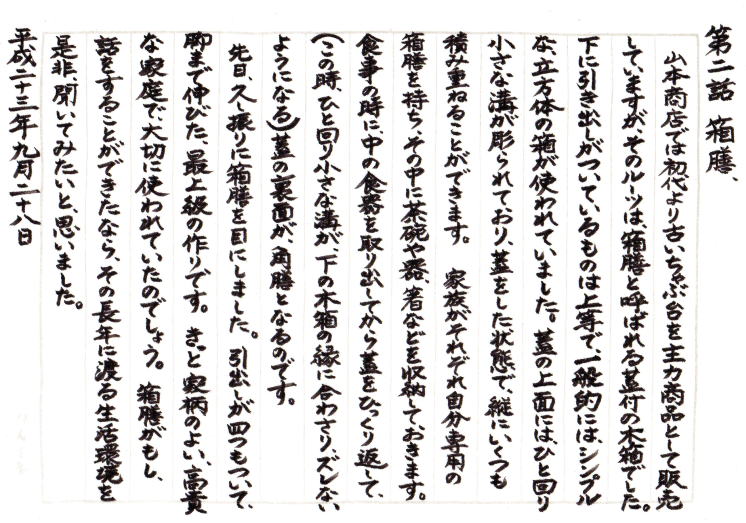 第二話 箱膳、
山本商店では初代より古いちゃぶ台を主力商品として販売
していますが、そのルーツは、箱膳と呼ばれる蓋付の木箱でした。
下に引き出しがついているものは上等で、一般的には、シンプル
な、立方体の箱が使われていました。蓋の上面には、ひと回り
小さな溝が彫られており、蓋をした状態で、縦にいくつも
積み重ねることができます。 家族がそれぞれ自分専用の
箱膳を持ち、その中に茶碗や器、箸などを収納しておきます。
食事の時に、中の食器を取り出してから蓋をひっくり返して、
(この時、ひと回り小さな溝が、下の木箱の縁に合わさり、ズレない
ようになる)蓋の裏面が、角膳となるのです。
先日、久し振りに箱膳を目にしました。引出しが四つもついて、
脚まで伸びた、最上級の作りです。きっと家柄のよい、高貴
な家庭で、大切に使われていたのでしょう。箱膳がもし、
話をすることができたなら、その長年に渡る生活環境を
是非、聞いてみたいと、思いました。
平成二十三年九月二十八日